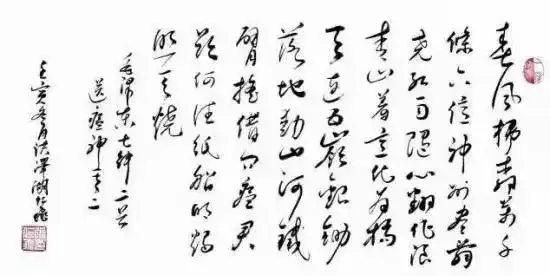 春风楊柳萬千
條六億神州盡舜
尧红雨隨心翻作浪
青山着意化为橋
天连五嶺銀鋤
落地動山河鐵
臂摇借问瘟君
欲何往纸船明燭
照天燒
毛泽东七律二首
送瘟神其二
亥冬月洪澤湖